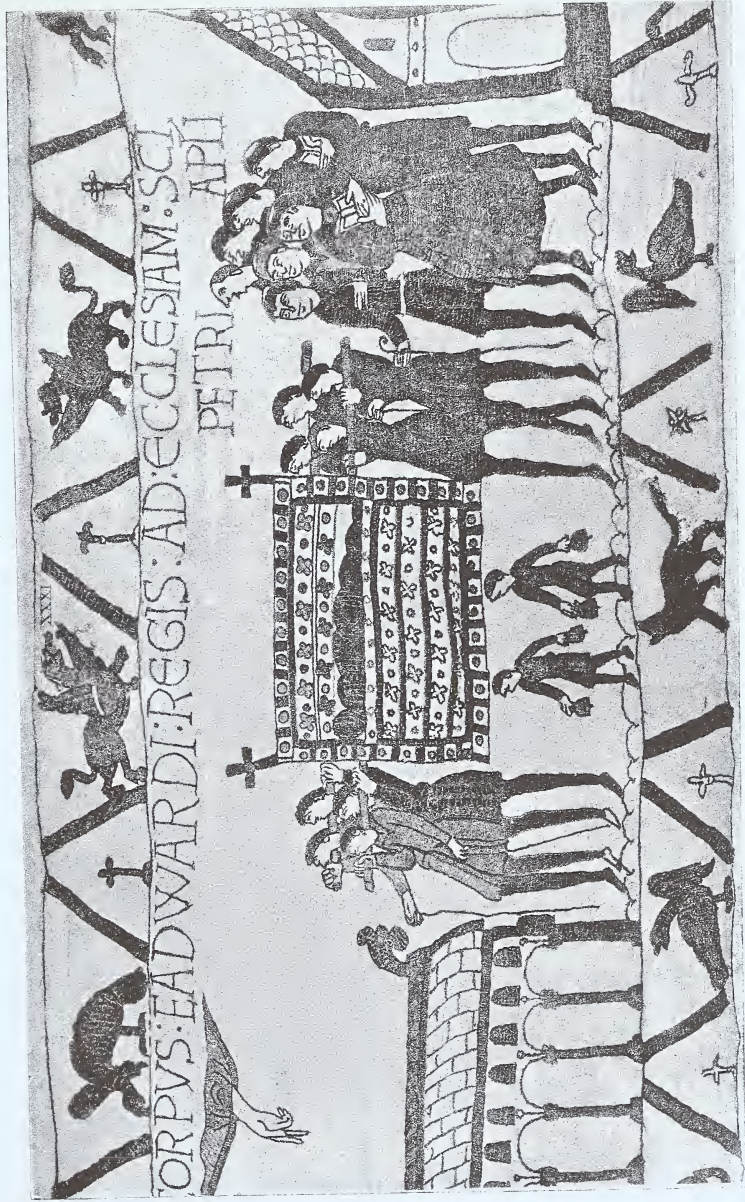 XXXI
ORPVS : EADWARDI : REGIS : AD : ECCLESIAM : SCI
PETRI APLI